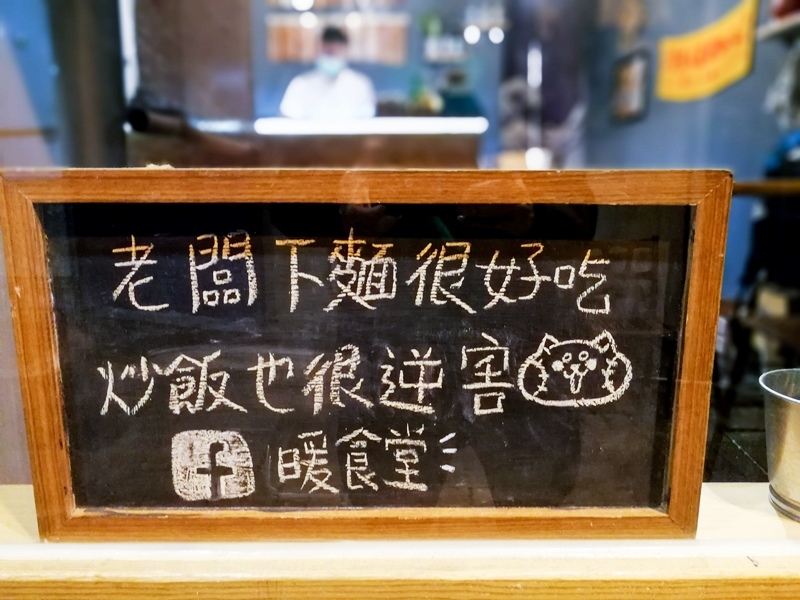 老闆下麵很好吃
炒飯也很逆害
f 暖食堂